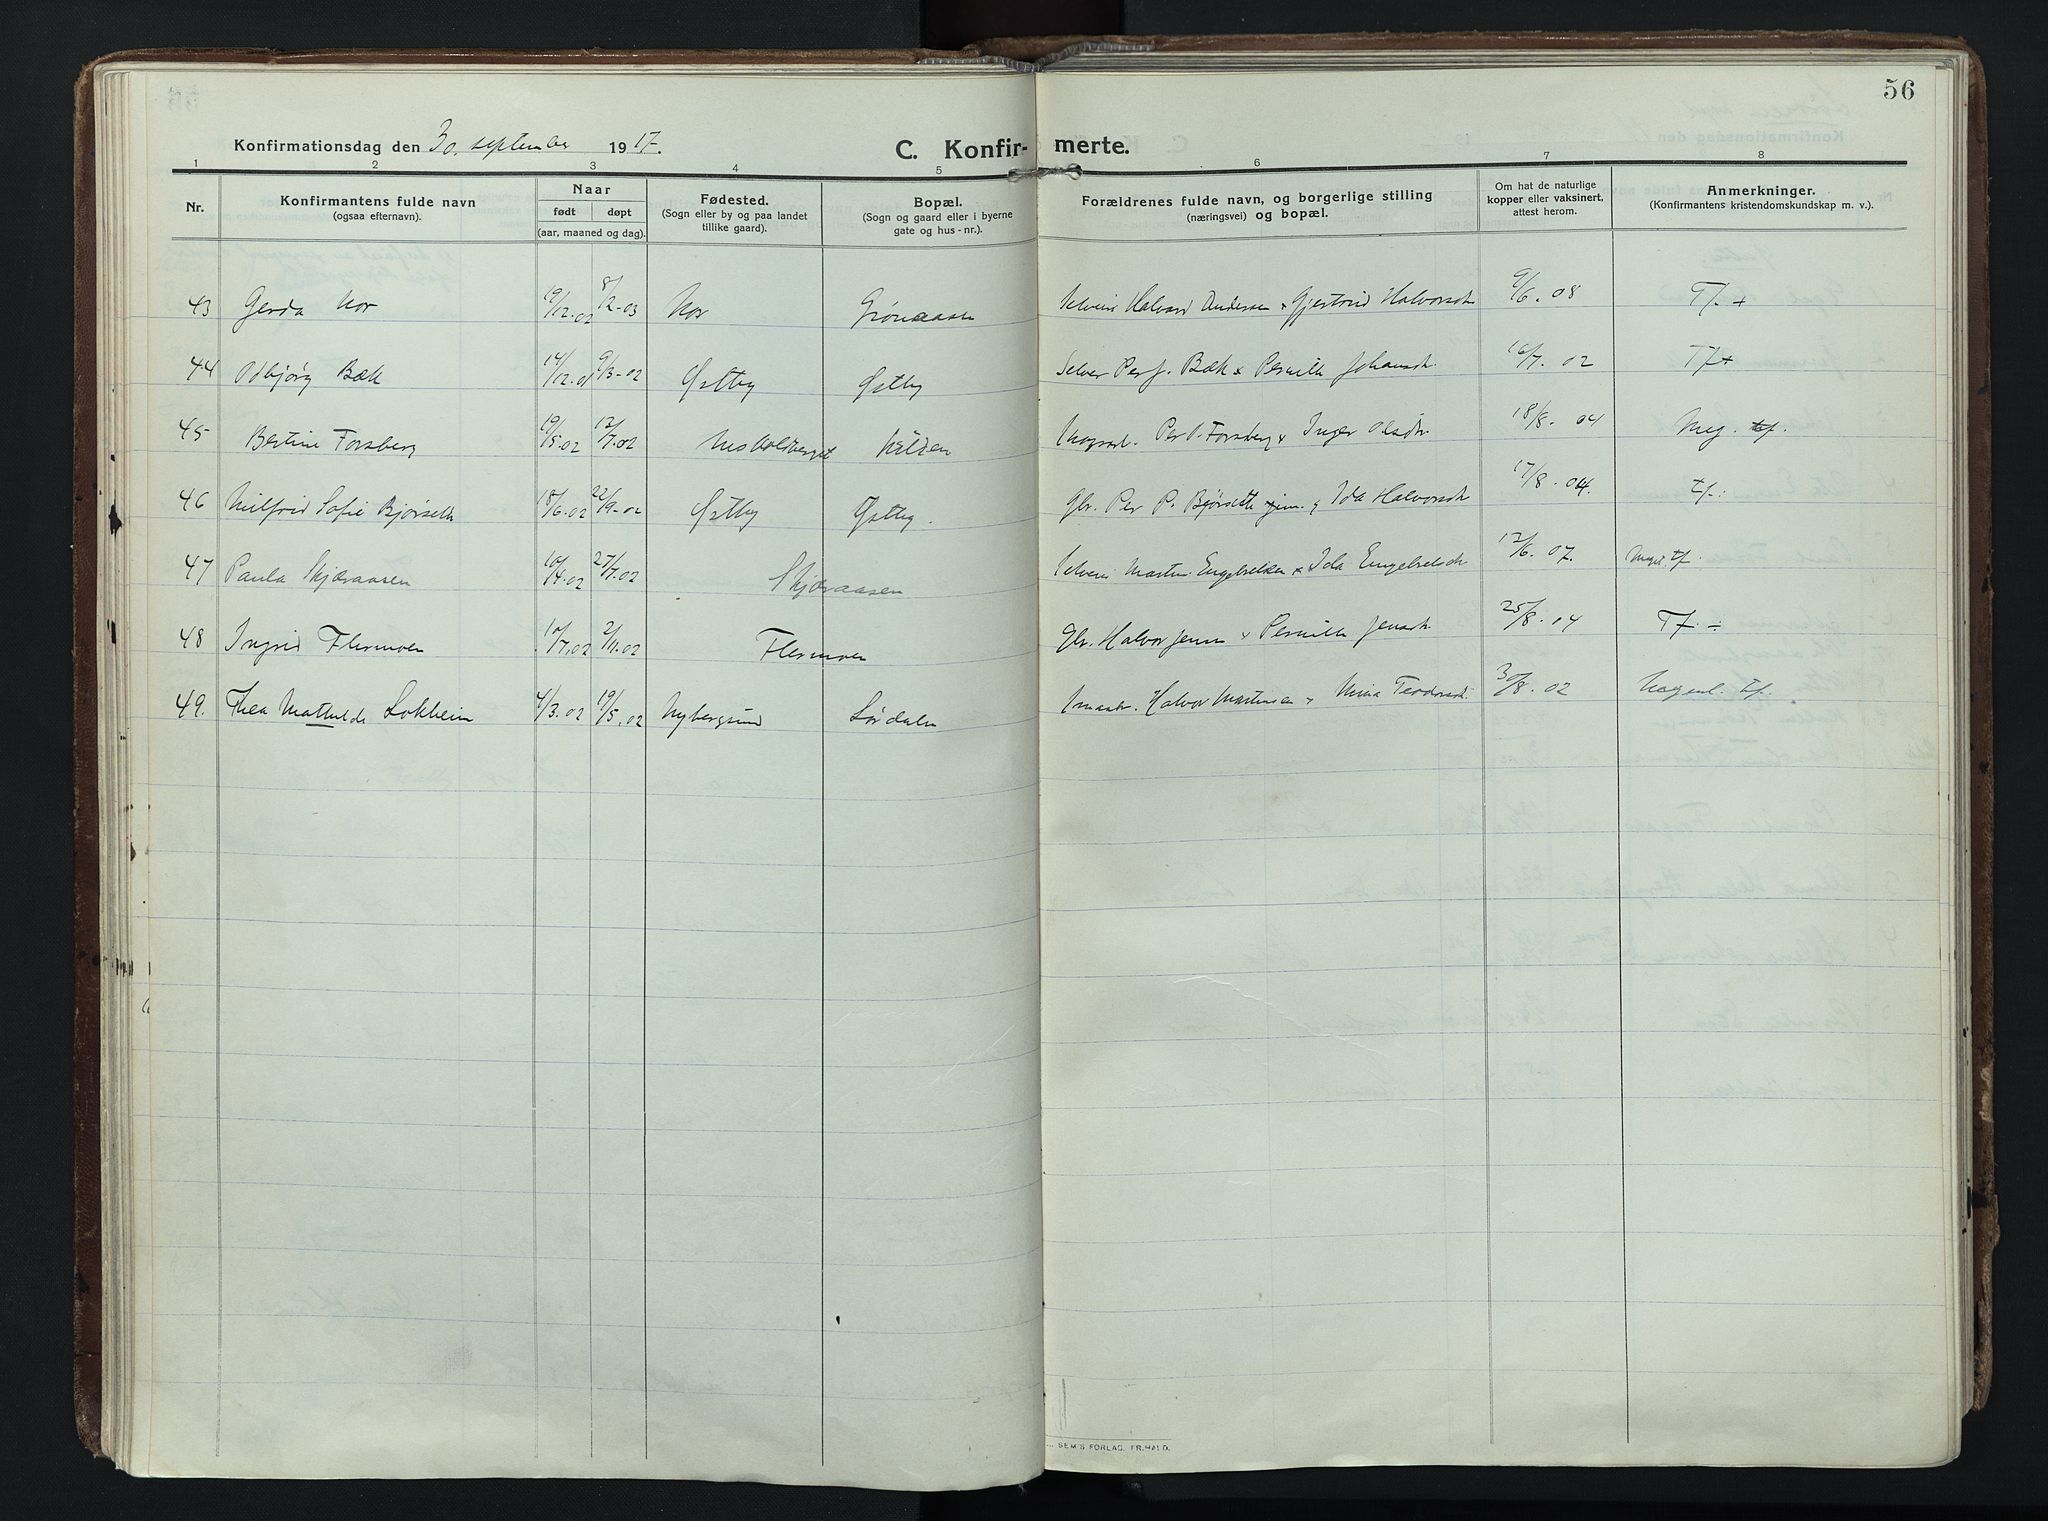 56
Konfirmationsdag den 30. september 1917. C. Konfir- merte.
1 2 3 4 5 6 7 8
Nr. Konfirmantens fulde navn (ogsaa efternavn). Naar født døpt (aar, maaned og dag). Fødested. (Sogn eller by og paa landet tillike gaard). Bopæl. (Sogn og gaard eller i byerne gate og hus-nr.). Forældrenes fulde navn, og borgerlige stilling (næringsvei) og bopæl. Om hat de naturlige kopper eller vaksinert, attest herom. Anmerkninger. (Konfirmantens kristendomskundskap m. v.).
43 Gerda Nor 19/12.02 8/2-03 Nor Grønaasen Halvard Andersen & Gjertrud Halvorsdt 9/6.08 Tf. +
44 Odbjørg Bæk 14/12.01 9/3-02 Østby Østby Selver Per J. Bæk & Pernille Johansdt. 16/7.02 Tf+
45 Bertine Forsberg 19/5.02 12/7.02 Kilden Per O. Forsberg & Inger Olsdtr. 18/8.04 Meg. tf.
46 Milfrid Sofie Bjørseth 18/6.02 22/9-02 Østby Østby. Gbr. Per P. Bjørseth jun. & Ida Halvorsdt 17/8.04. tf.
47 Paula Skjæraasen 10/4.02 27/7.02 Skjæraasen Martin Engebretsen & Ida Engebretsdt 12/6.07. Meget tf.
48 Ingrid Flermoen 10/7.02 2/11.02 Flermoen Gbr. Halvor Jensen & Pernille Jensdt. 25/8.04 Tf. ÷
49. Thea Mathilde Lokheim 4/3.02 19/5.02 Nybergsund Sørdalen Smaabr. Halvor Martinsen & Mina Teodorsdt. 30/8.02 tf.
SEM'S FORLAG. FR. HALD.